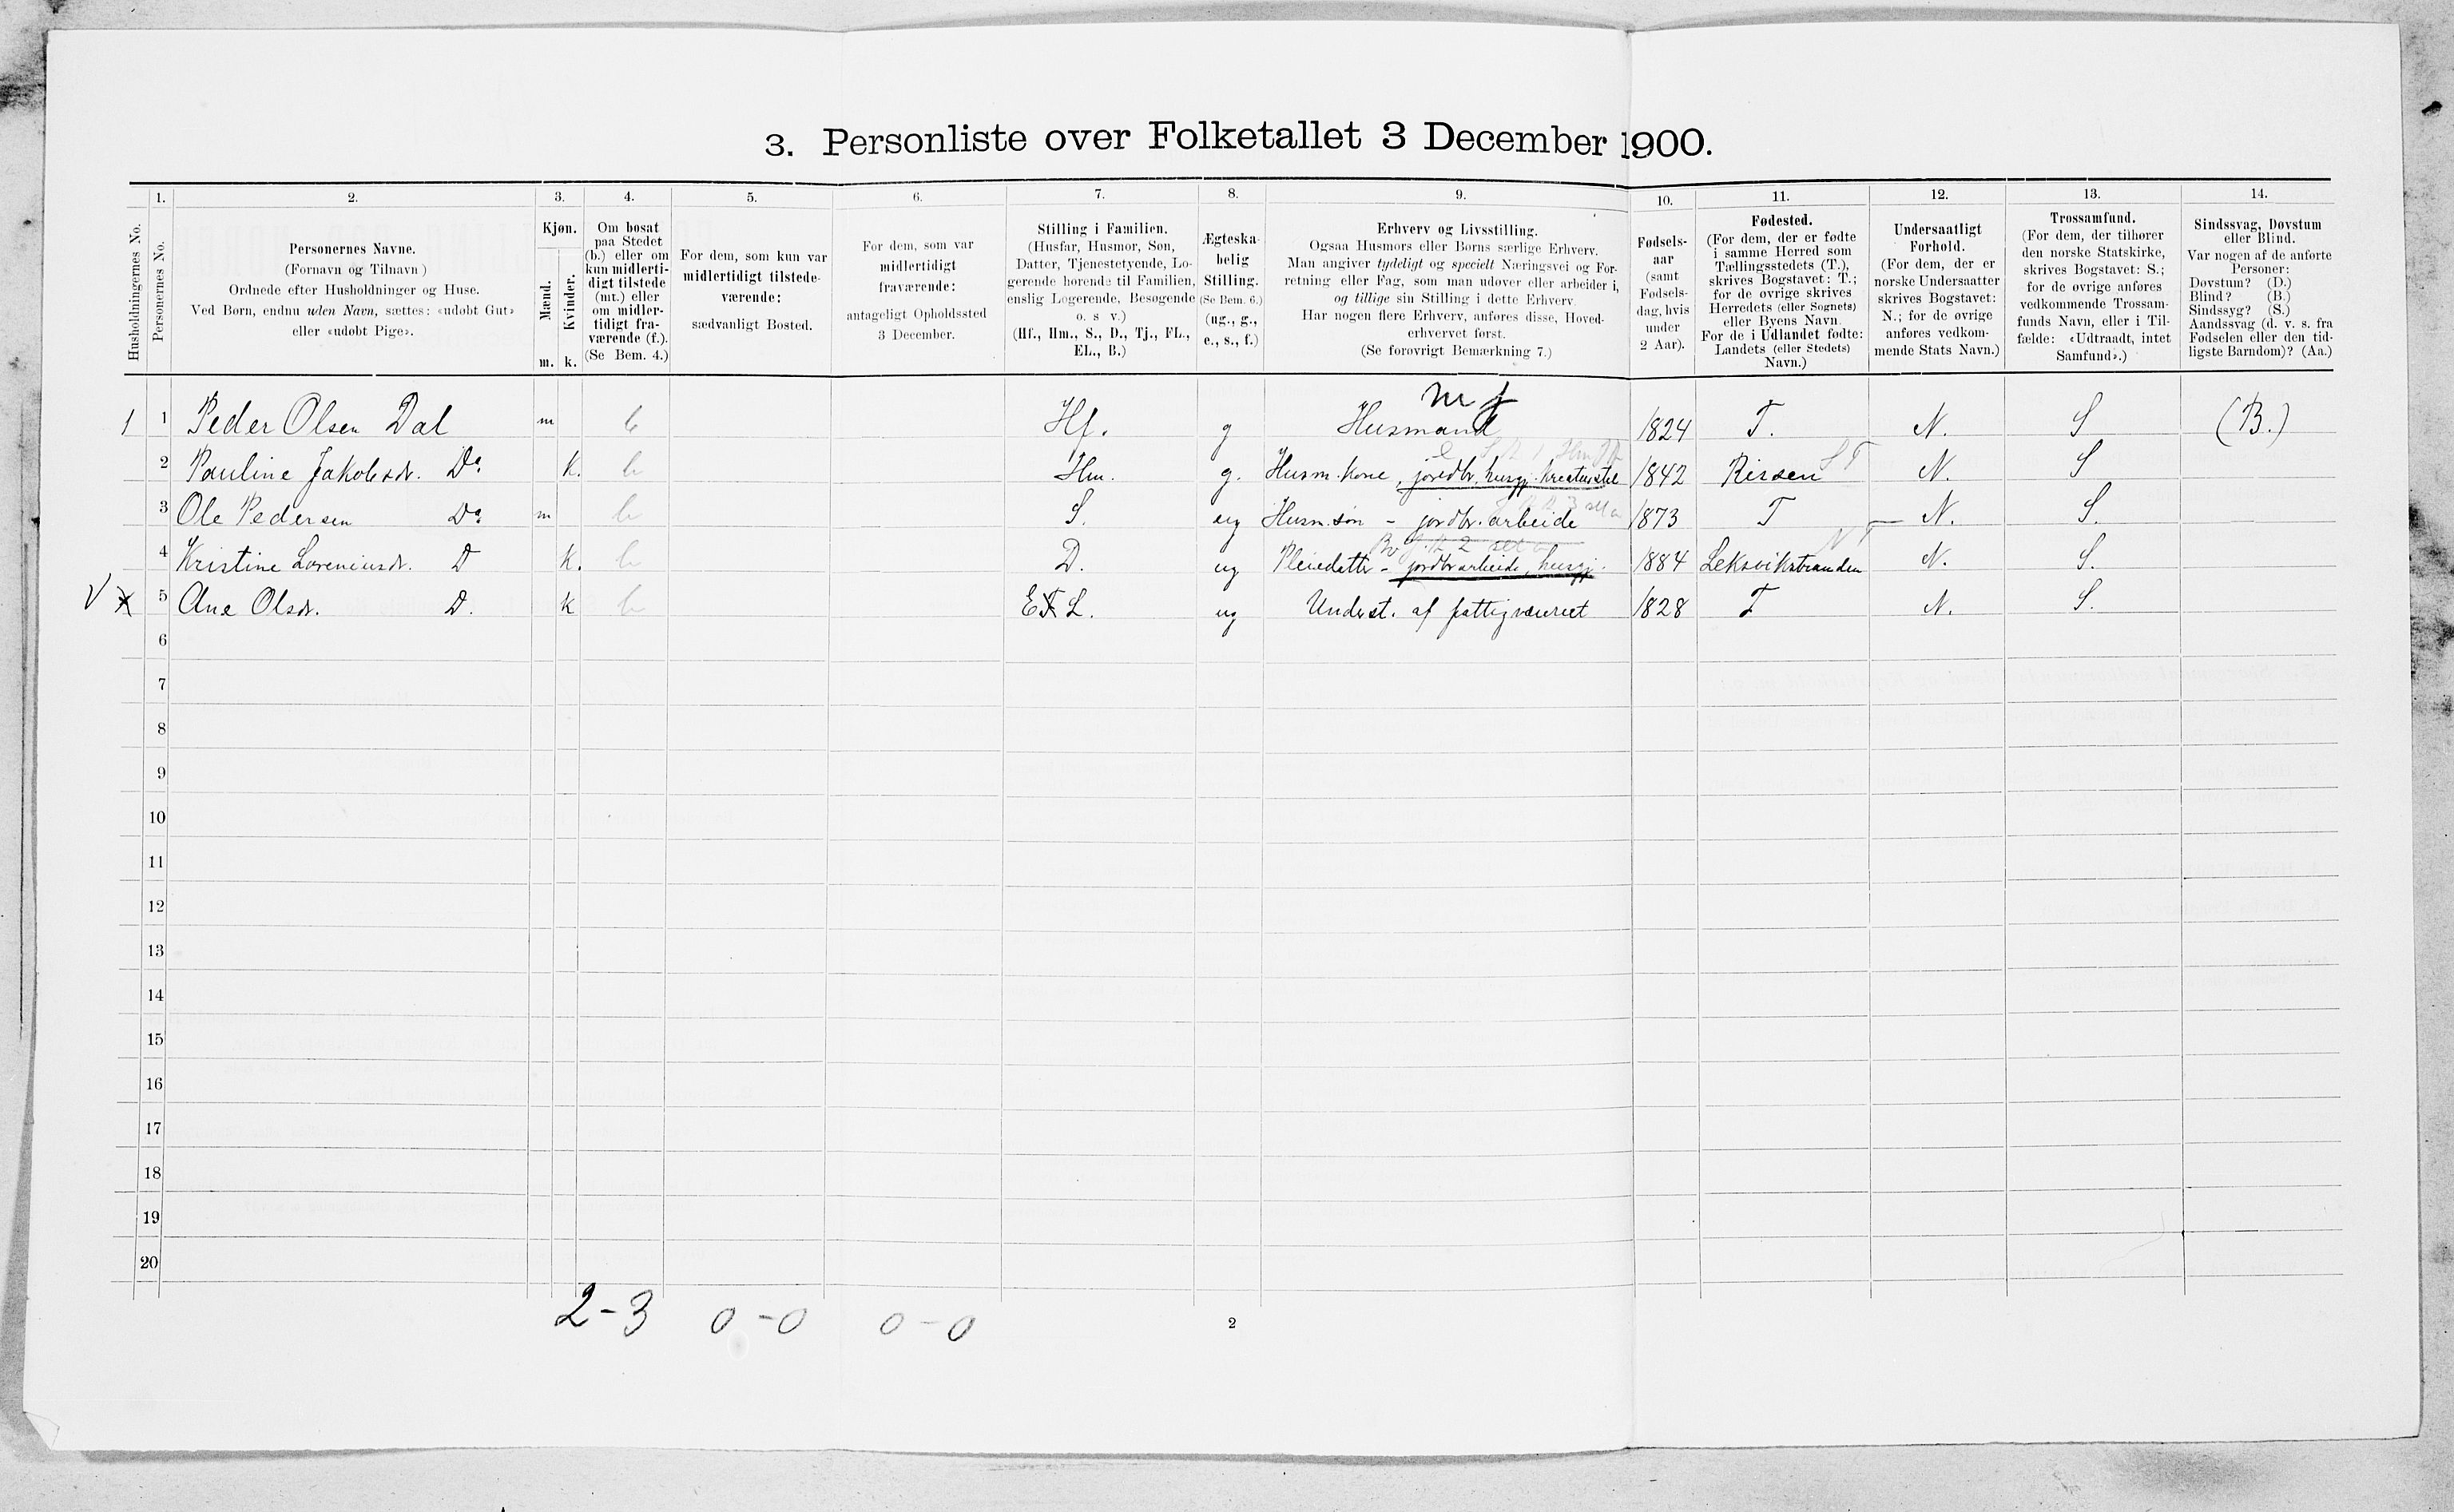 3. Personliste over Folketallet 3 December 1900.
Husholdningernes No.
1.
Personernes No.
2.
Personernes Navne.
(Fornavn og Tilnavn)
Ordnede efter Husholdninger og Huse.
Ved Børn, endnu uden Navn, sættes: «udøbt Gut»
eller «udøbt Pige».
3.
Kjøn.
Mænd.
Kvinder.
m. k.
4.
Om bosat
paa Stedet
(b.) eller om
kun midlerti-
digt tilstede
(mt.) eller
om midler-
tidigt fra-
værende (f.).
(Se Bem. 4.)
5.
For dem, som kun var
midlertidigt tilstede-
værende:
sædvanligt Bosted.
6.
For dem, som var
midlertidigt
fraværende:
antageligt Opholdssted
3 December.
7.
Stilling i Familien.
(Husfar, Husmor, Søn,
Datter, Tjenestetyende, Lo-
gerende hørende til Familien,
enslig Logerende, Besøgende
o. s v.)
(Hf., Hm., S., D., Tj., FL.,
EL., B.)
8.
Ægteska-
belig
Stilling.
(Se Bem. 6.)
(ug., g.,
e., s., f.)
9.
Erhverv og Livsstilling.
Ogsaa Husmors eller Børns særlige Erhverv.
Man angiver tydeligt og specielt Næringsvei og For-
retning eller Fag, som man udøver eller arbeider i,
og tillige sin Stilling i dette Erhverv.
Har nogen flere Erhverv, anføres disse, Hoved-
erhvervet først.
(Se forøvrigt Bemærkning 7.)
10.
Fødsels-
aar
(samt
Fødsels-
dag, hvis
under
2 Aar).
11.
Fødested.
(For dem, der er fødte
i samme Herred som
Tællingsstedets (T.),
skrives Bogstavet: T.;
for de øvrige skrives
Herredets (eller Sognets)
eller Byens Navn.
For de i Udlandet fødte:
Landets (eller Stedets)
Navn.)
12.
Undersaatligt
Forhold.
(For dem, der er
norske Undersaatter
skrives Bogstavet:
N.; for de øvrige
anføres vedkom-
mende Stats Navn.)
13.
Trossamfund.
(For dem, der tilhører
den norske Statskirke,
skrives Bogstavet: S.;
for de øvrige anføres
vedkommende Trossam-
funds Navn, eller i Til-
fælde: «Udtraadt, intet
Samfund».)
14.
Sindssvag, Døvstum
eller Blind.
Var nogen af de anførte
Personer:
Døvstum? (D.)
Blind? (B.)
Sindssyg? (S.)
Aandssvag (d. v. s. fra
Fødselen eller den tid-
ligste Barndom)? (Aa.)
1 1 Peder Olsen Dal m b Hf. g Husmand 1824 T. N. S (B.)
2 Pauline Jakobsdr. Do. K. b Hm. g. Husm. kone, jordbr, husgj. kreaturstel 1842 Rissen N. S
3 Ole Pedersen Do. m b S. ug Husm. søn - jordbr. arbeide 1873 T N. S.
4 Kristine Loreniusdr. D K. b D. ug Pleiedatter - jordbrarbeide, husgj. 1884 Leksvikstranden N. S.
5 Ane Olsdr. D. k b E L. ug Underst. af fattigvæsenet 1828 T N. S.
6
7
8
9
10
11
12
13
14
15
16
17
18
19
20
2-3 0-0 0-0
2